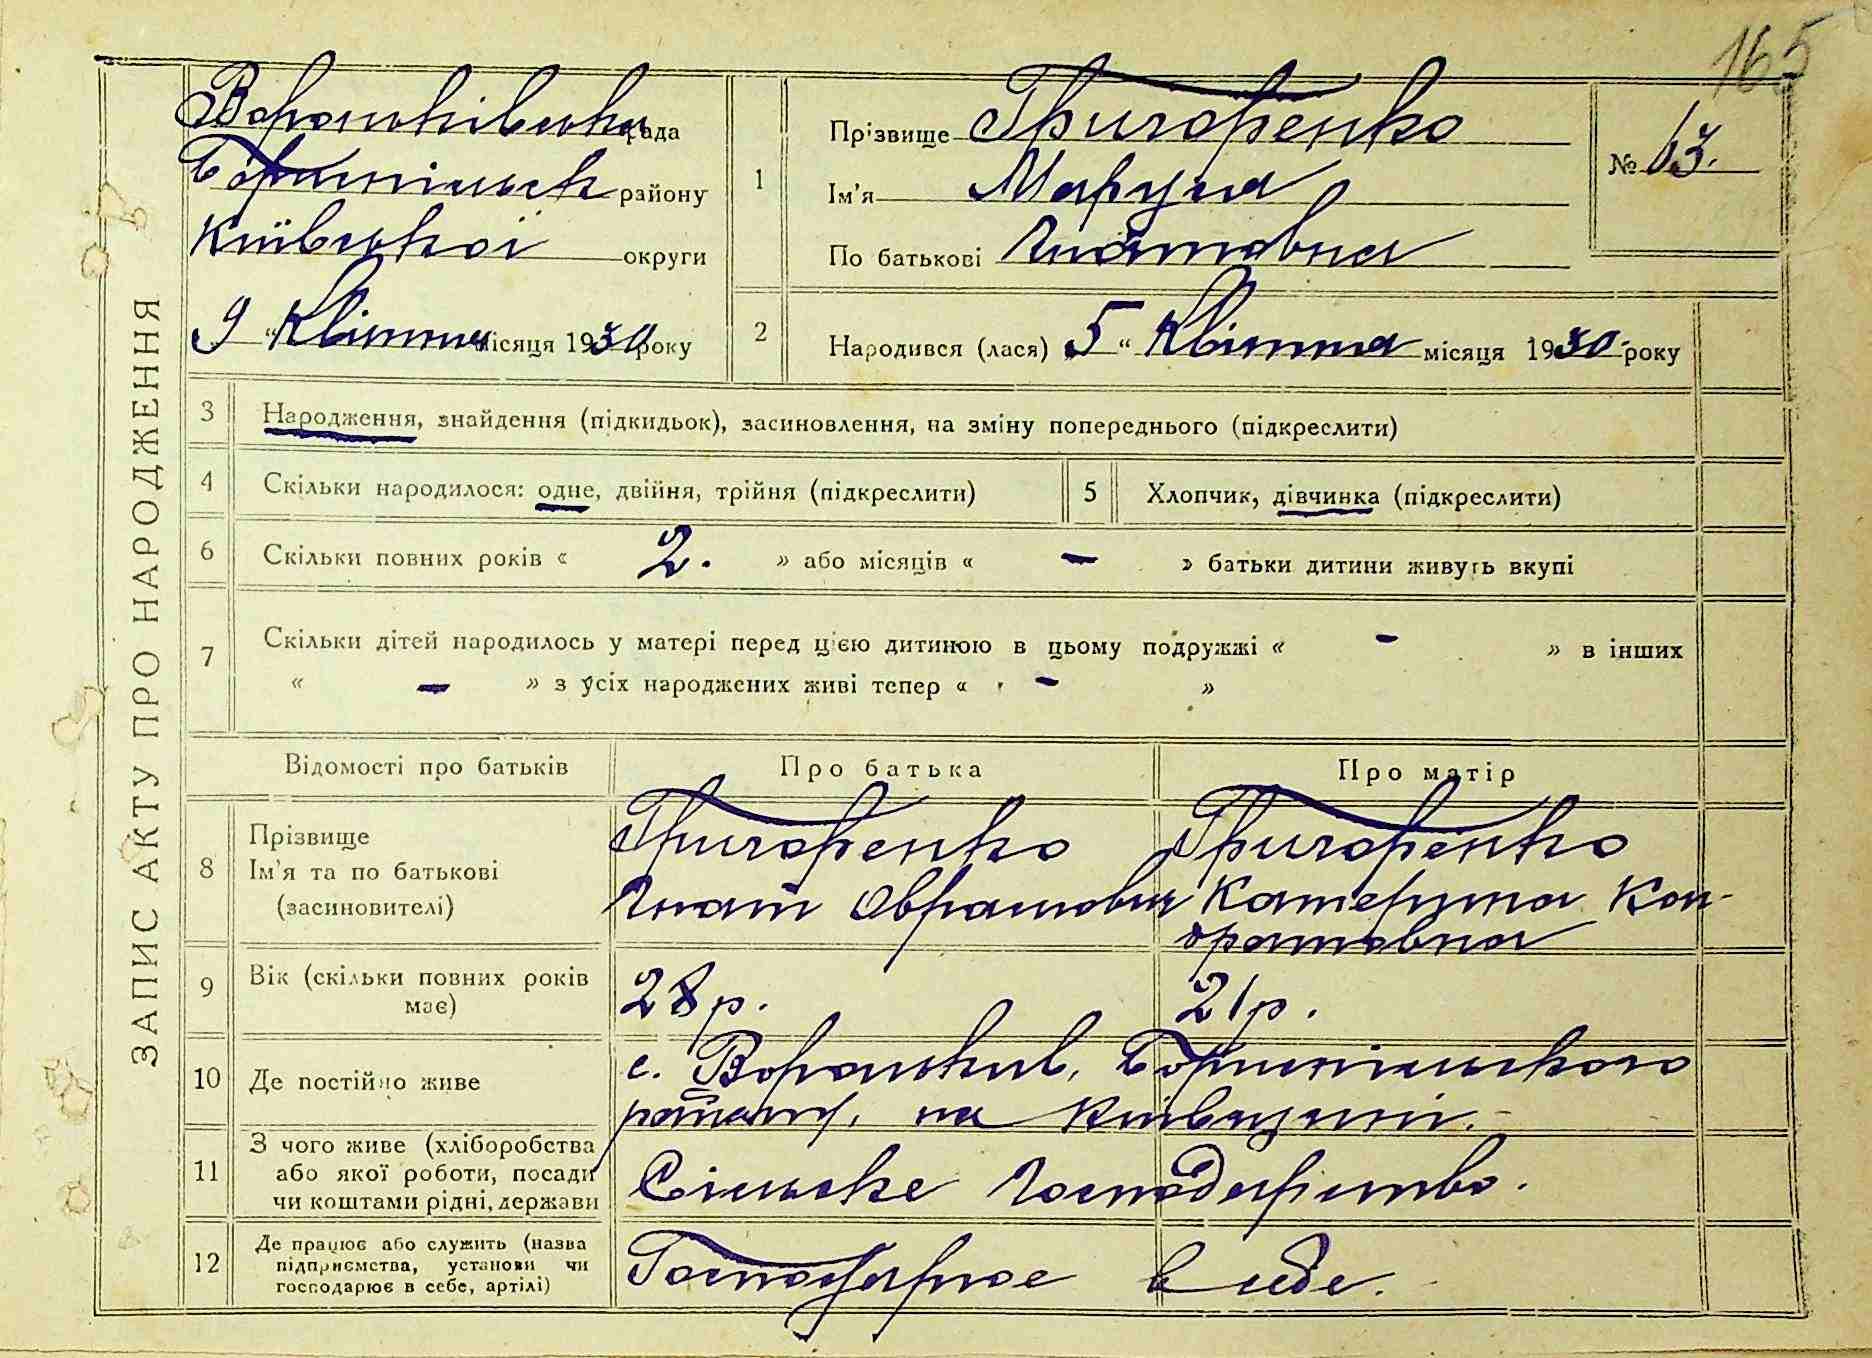 165
Вороньківська рада
Бориспільськ району
Київської округи
„9“ Квітня місяця 1930 року
1
Прізвище Григоренко
Ім'я Маруся
По батькові Гнатовна
№ 63.
2
Народився (лася) „5“ Квітня місяця 1930 року
ЗАПИС АКТУ ПРО НАРОДЖЕННЯ
3 Народження, знайдення (підкидьок), засиновлення, на зміну попереднього (підкреслити)
4 Скільки народилося: одне, двійня, трійня (підкреслити) 5 Хлопчик, дівчинка (підкреслити)
6 Скільки повних років « 2. » або місяців « - » батьки дитини живуть вкупі
7 Скільки дітей народилось у матері перед цією дитиною в цьому подружжі « - » в інших
« - » з усіх народжених живі тепер « - »
Відомості про батьків Про батька Про матір
8
Прізвище
Ім'я та по батькові
(засиновителі)
Григоренко
Гнат Оврамович
Григоренко
Катерина Кон-
дратовна
9
Вік (скільки повних років
має)
28 р.
21 р.
10 Де постійно живе
с. Вороньків, Бориспільського
району, на Київщині.-
11
З чого живе (хліборобства
або якої роботи, посади
чи коштами рідні, держави
Сільське Господарство.
12
Де працює або служить (назва
підприємства, установи чи
господарює в себе, артілі)
Господарює в себе.